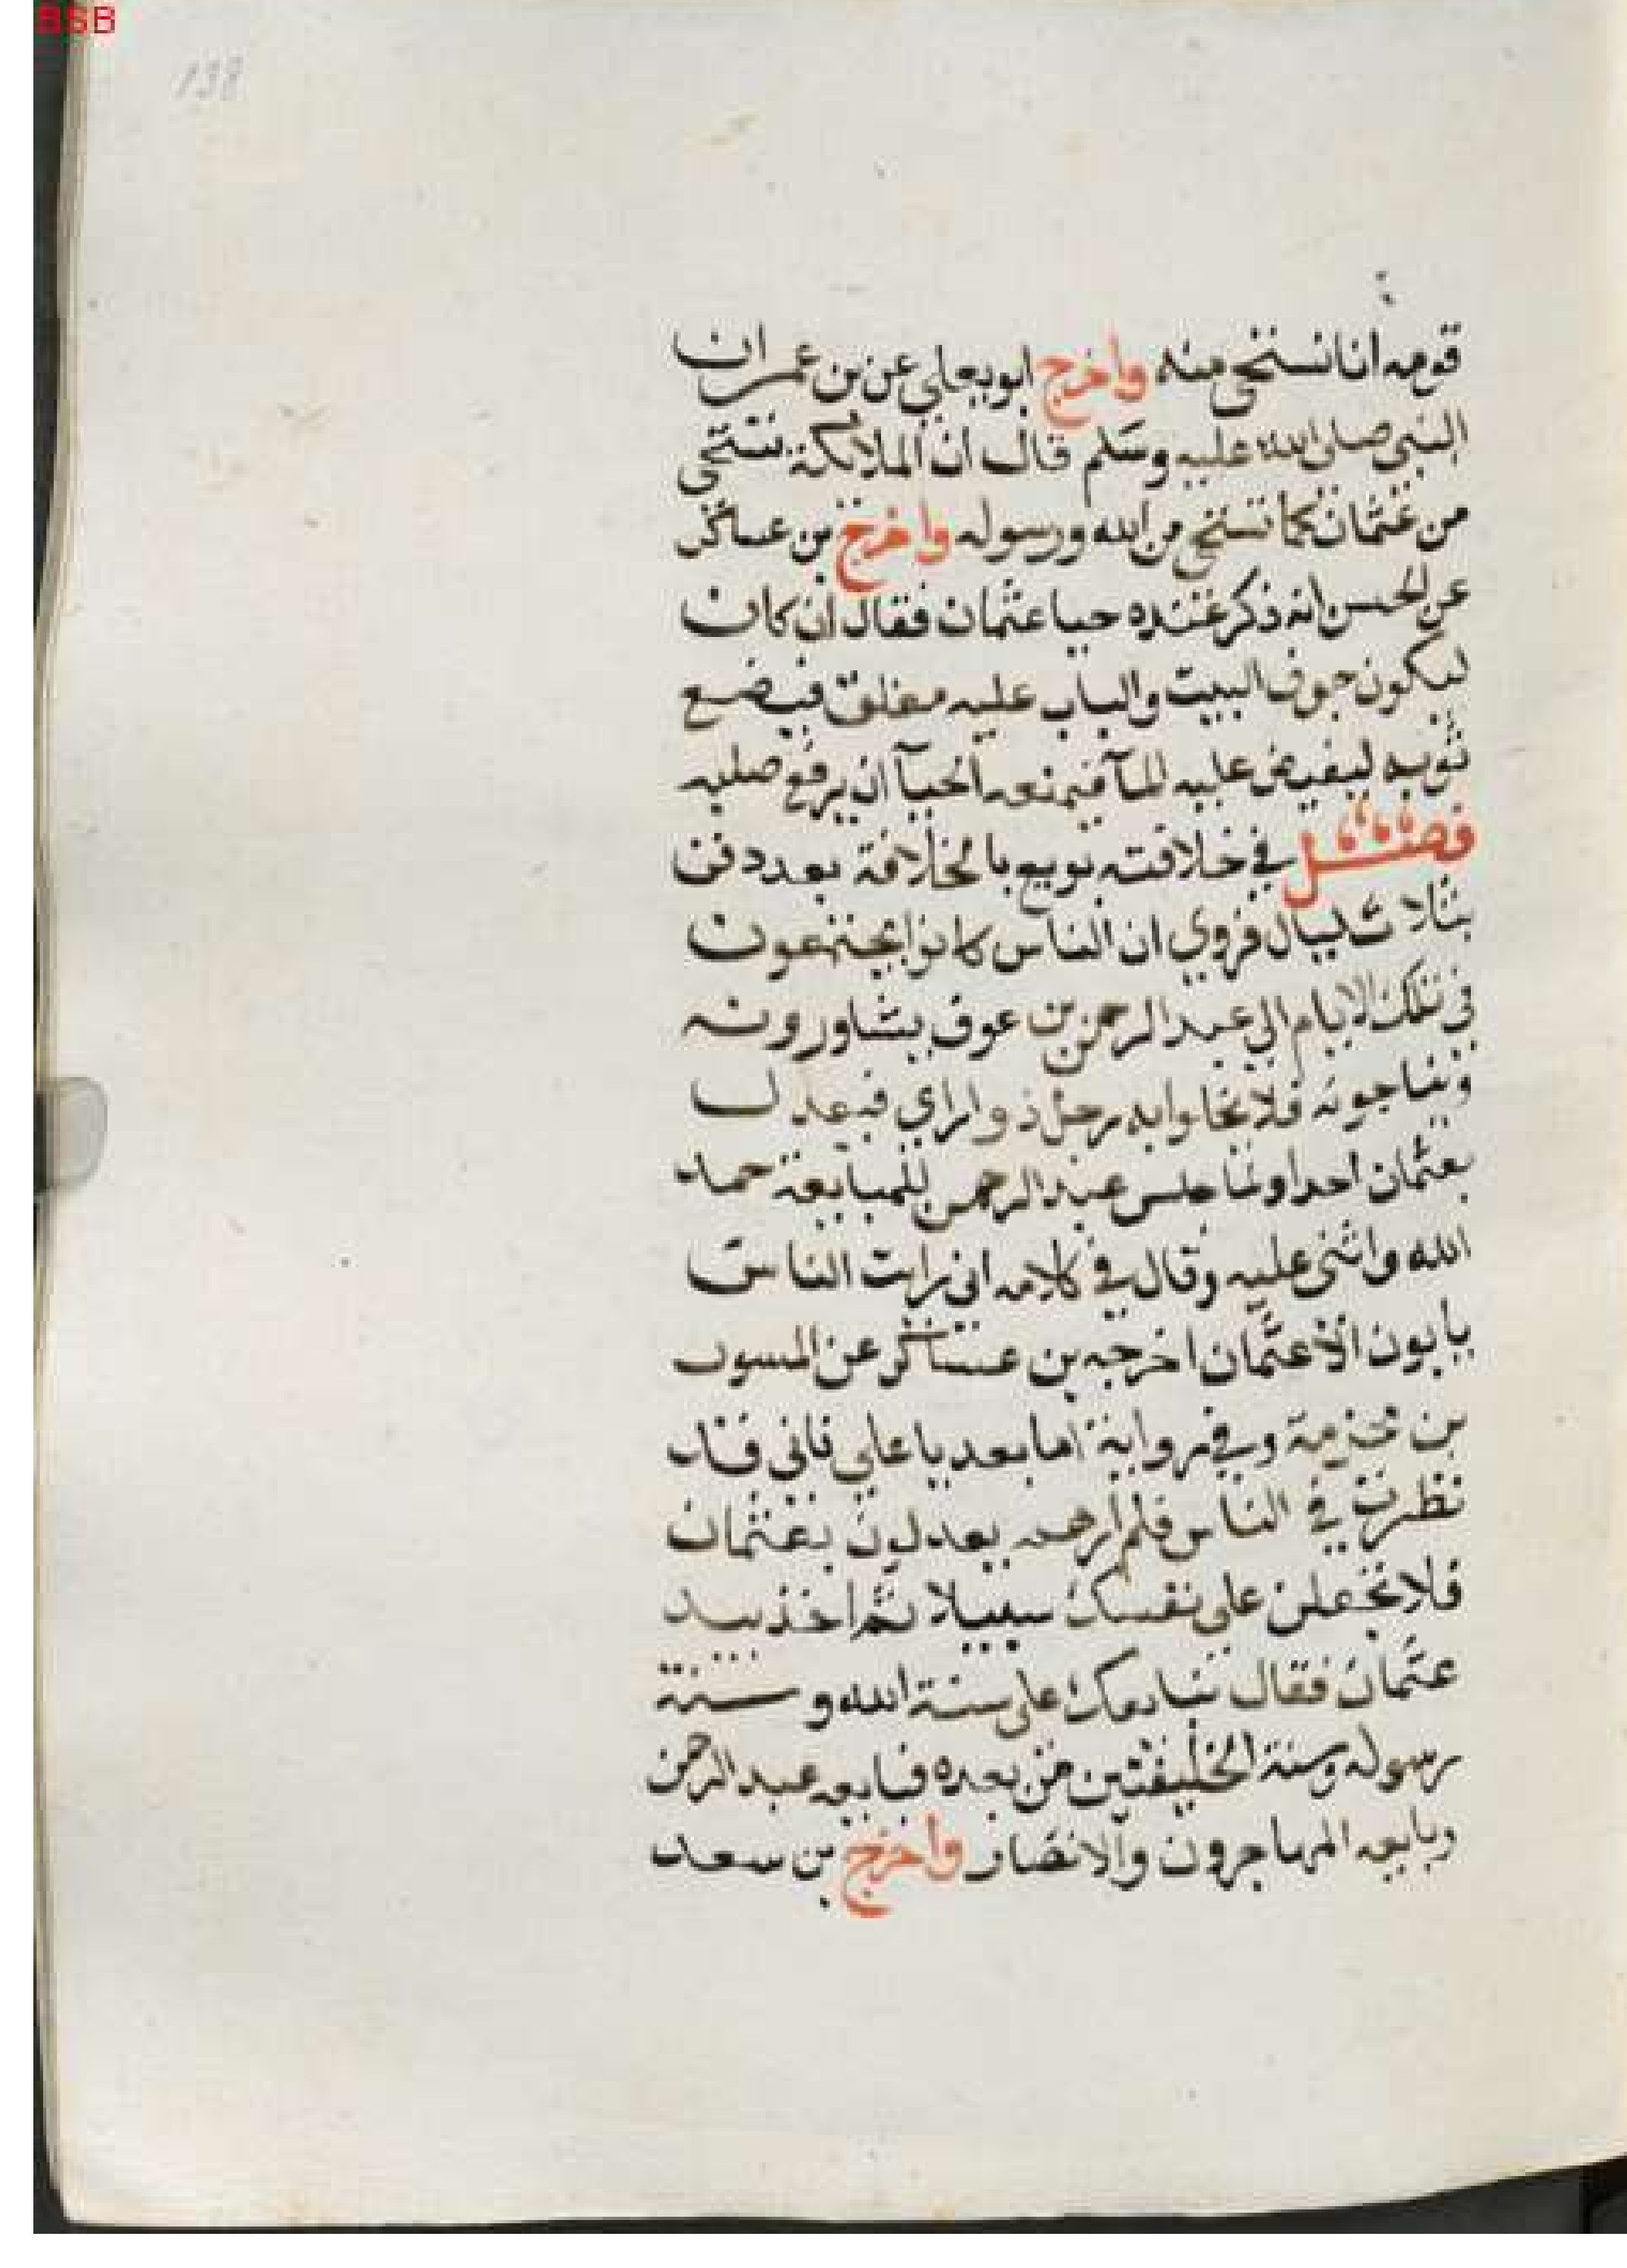 BSB
138
قومه انا نستحي منه واخرج ابو يعلي عن بن عمر ان
النبي صلى الله عليه وسلم قال ان الملائكة تستحي
من عثمان كما تستحي من الله ورسوله واخرج بن عساكر
عن الحسن انه ذكر عنده حيا عثمان فقال ان كان
ليكون جوف البيت والباب عليه مغلق فيضع
ثوبه ليفيض عليه المآ فيمنعه الحيآ ان يرفع صلبه
فصل في خلافته بويع بالخلافة بعد دفن
بثلاث ليال فروي ان الناس كانوا يجتمعون
في تلك الايام الي عبد الرحمن بن عوف يشاورونه
ويناجونه فلا يخلوا به رجل ذوا راي فيعدل
بعثمان احدا ولما جلس عبد الرحمن للمبايعة حمد
الله واثنى عليه وقال في كلامه اني رايت الناس
يابون الا عثمان اخرجه بن عساكر عن المسور
بن مخزمة وفي رواية اما بعد يا علي فاني قد
نظرت في الناس فلم ارهم يعدلون بعثمان
فلا تجعلن على نفسك سبيلا ثم اخذ بيد
عثمان فقال نبايعك على سنة الله وسنة
رسوله وسنة الخليفتين من بعده فبايعه عبد الرحمن
وبايعه المهاجرون والانصار واخرج بن سعد